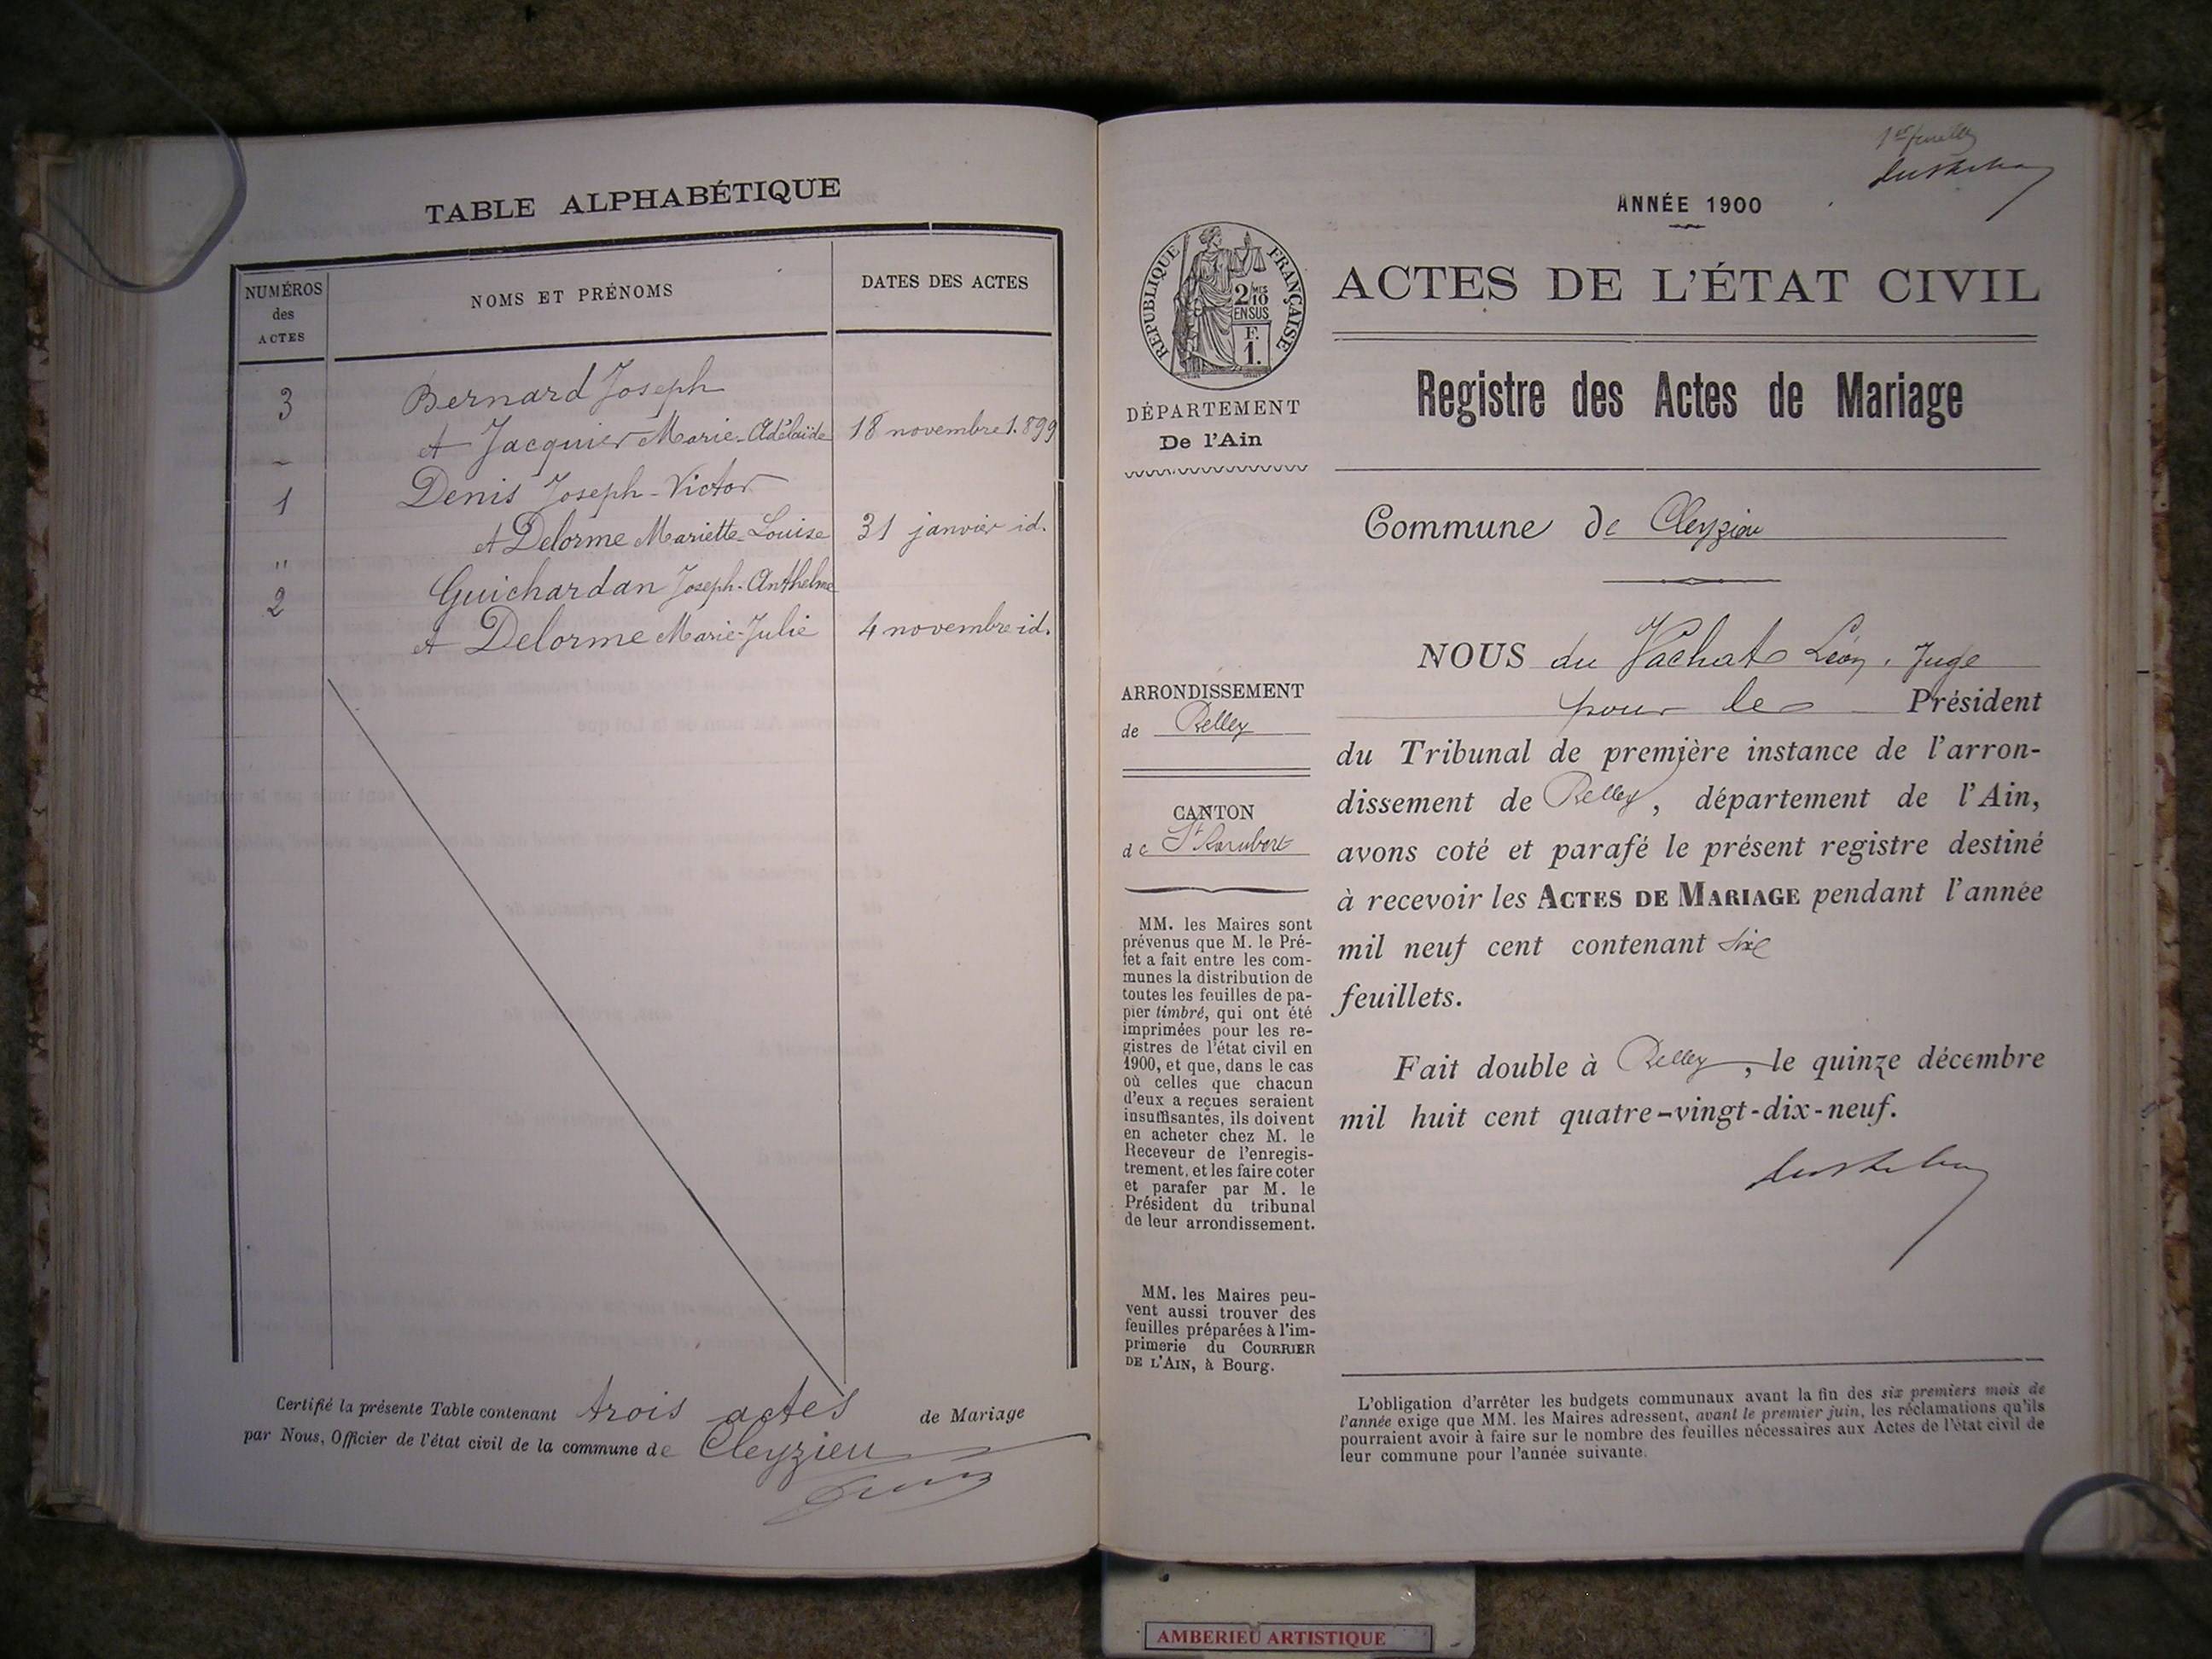 TABLE ALPHABÉTIQUE
NUMÉROS
des
ACTES
NOMS ET PRÉNOMS
DATES DES ACTES
3 Bernard Joseph
et Jacquier Marie-Adélaïde 18 novembre 1.899
1 Denis Joseph-Victor
et Delorme Mariette-Louise 31 janvier id.
"
2 Guichardan Joseph-Anthelme
et Delorme Marie-Julie 4 novembre id.
Certifié la présente Table contenant trois actes de Mariage
par Nous, Officier de l'état civil de la commune de Cleyzieu
1er feuillet
ANNÉE 1900
RÉPUBLIQUE FRANÇAISE
2/10 MES
EN SUS
F.
1.
DÉPARTEMENT
De l'Ain
ACTES DE L'ÉTAT CIVIL
Registre des Actes de Mariage
Commune de Cleyzieu
ARRONDISSEMENT
de Belley
CANTON
de St Rambert
MM. les Maires sont
prévenus que M. le Pré-
fet a fait entre les com-
munes la distribution de
toutes les feuilles de pa-
pier timbré, qui ont été
imprimées pour les re-
gistres de l'état civil en
1900, et que, dans le cas
où celles que chacun
d'eux a reçues seraient
insuffisantes, ils doivent
en acheter chez M. le
Receveur de l'enregis-
trement, et les faire coter
et parafer par M. le
Président du tribunal
de leur arrondissement.
MM. les Maires peu-
vent aussi trouver des
feuilles préparées à l'im-
primerie du COURRIER
DE L'AIN, à Bourg.
NOUS du Vachat Léon, Juge
pour le Président
du Tribunal de première instance de l'arron-
dissement de Belley, département de l'Ain,
avons coté et parafé le présent registre destiné
à recevoir les ACTES DE MARIAGE pendant l'année
mil neuf cent contenant six
feuillets.
Fait double à Belley, le quinze décembre
mil huit cent quatre-vingt-dix-neuf.
L'obligation d'arrêter les budgets communaux avant la fin des six premiers mois de
l'année exige que MM. les Maires adressent, avant le premier juin, les réclamations qu'ils
pourraient avoir à faire sur le nombre des feuilles nécessaires aux Actes de l'état civil de
leur commune pour l'année suivante.
AMBERIEU ARTISTIQUE